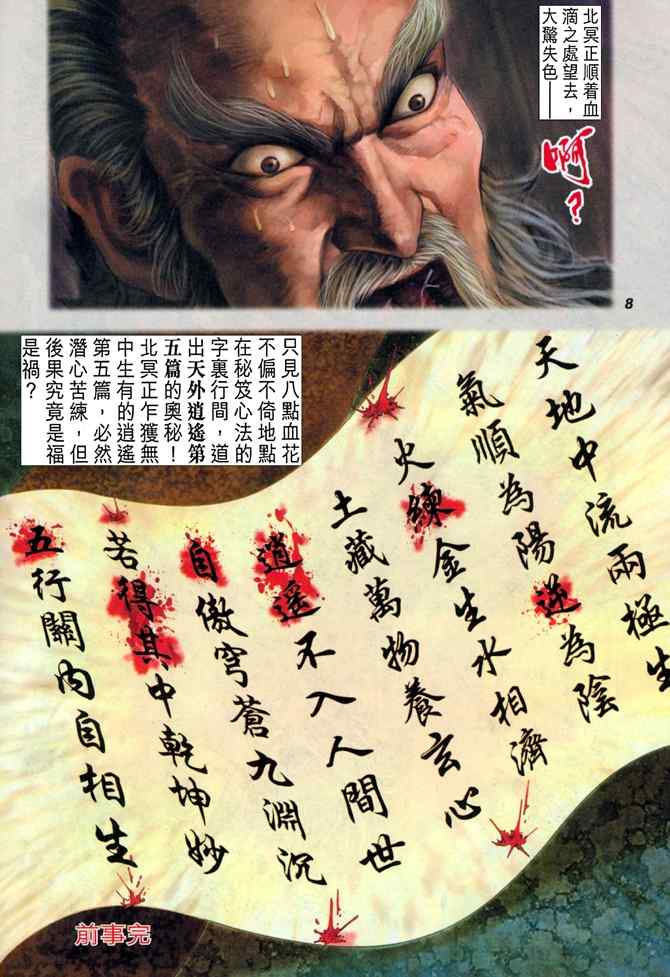 北冥正順着血
滴之處望去，
大驚失色——
啊？
8
只見八點血花
不偏不倚地點
在秘笈心法的
字裏行間，道
出天外逍遙第
五篇的奧秘！
北冥正乍獲無
中生有的逍遙
第五篇，必然
潛心苦練，但
後果究竟是福
是禍？
天地中流兩極生
氣順為陽逆為陰
火練金生水相濟
土藏萬物養玄心
逍遙不入人間世
自傲穹蒼九淵沉
若得其中乾坤妙
五行關內自相生
前事完